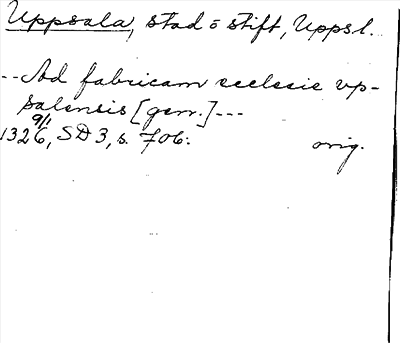 Uppsala, stad o stift, Uppsl.
-- Ad fabricam ecclesie vp-
salensis [gen.] ---
9/1
1326, SD 3, s. 706.
orig.